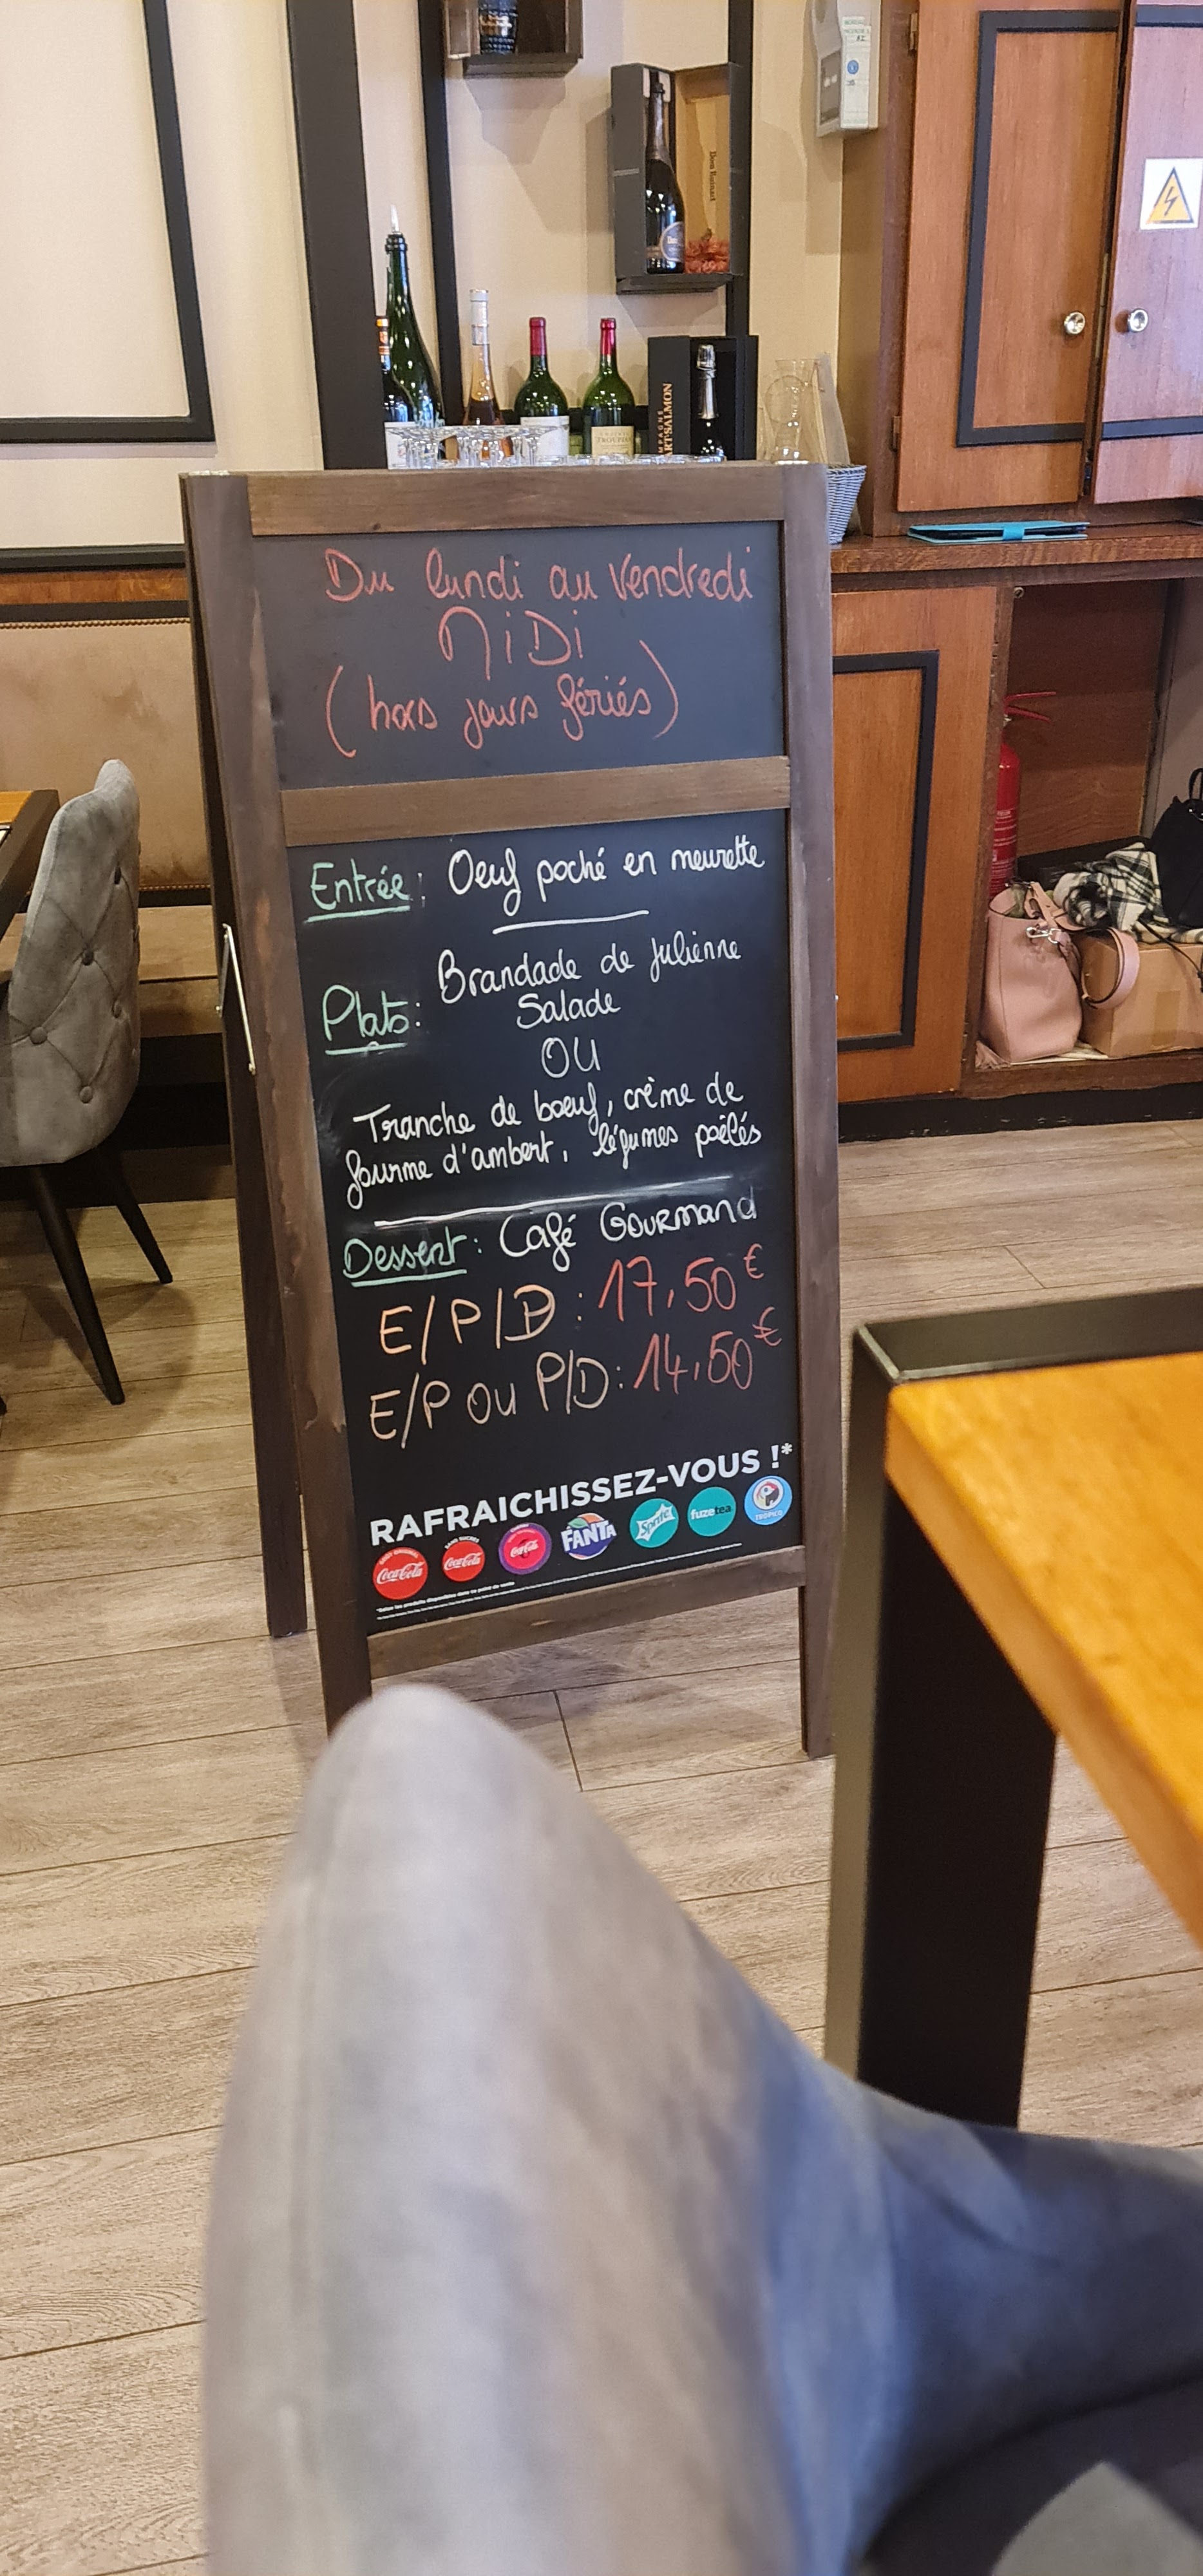 Dom Ruinart
TROTTEVIEILLE
Du lundi au Vendredi
MiDi
(hors jours fériés)
Entrée : Oeuf poché en meurette
Plats : Brandade de Julienne
Salade
OU
Tranche de boeuf, crème de
fourme d'ambert, légumes poêlés
Dessert : Café Gourmand
E/P/D : 17,50 €
E/P OU P/D : 14,50 €
RAFRAICHISSEZ-VOUS !*
GOÛT ORIGINAL Coca-Cola
SANS SUCRES Coca-Cola
Coca-Cola
FANTA
Sprite
fuzetea
TROPICO
*Selon les produits disponibles dans ce point de vente